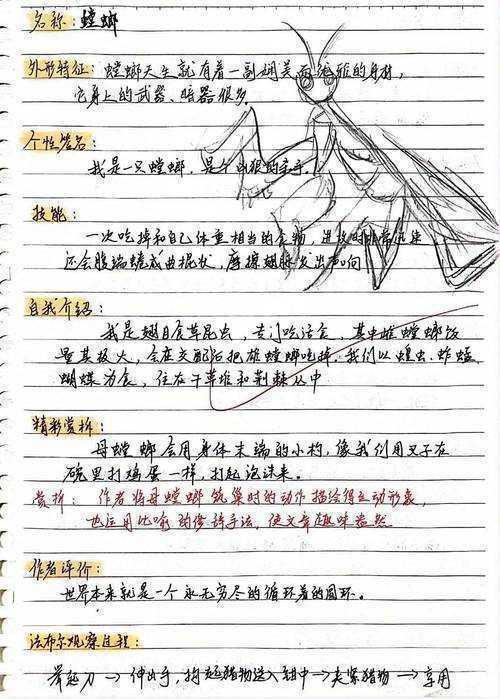 名称：螳螂
外形特征：螳螂天生就有着一副娴美而优雅的身材，
它身上的武器、暗器很多
个性签名：
我是一只螳螂，是个凶狠的杀手。
技能：
一次吃掉和自己体重相当的食物，进攻时非常迅速
还会腹端蜷成曲棍状，摩擦翅膀发出声响
自我介绍：
我是翅目食草昆虫，专门吃活食，其中雌螳螂饭
量其极大，会在交配后把雄螳螂吃掉，我们以蝗虫、蚱蜢
蝴蝶为食，住在干草堆和荆棘丛中
精彩赏析：
母螳螂会用身体末端的小杓，像我们用叉子在
碗里打鸡蛋一样，打起泡沫来。
赏析：作者将母螳螂筑巢时的动作描绘得生动形象，
也运用比喻的修辞手法，使文章趣味盎然
作者评价：
世界本来就是一个永无穷尽的循环着的圆环。
法布尔观察过程：
举起刀→伸出手，钩起猎物送入钳中→夹紧猎物→享用